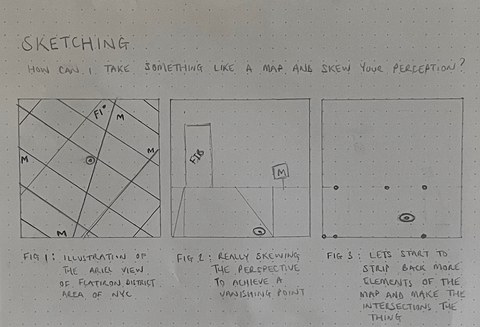 SKETCHING
HOW CAN I TAKE SOMETHING LIKE A MAP AND SKEW YOUR PERCEPTION?
FI
M
M
M
M
FIB
M
FIG 1: ILLUSTRATION OF
THE ARIEL VIEW
OF FLATIRON DISTRICT
AREA OF NYC
FIG 2: REALLY SKEWING
THE PERSPECTIVE
TO ACHIEVE A
VANISHING POINT
FIG 3: LETS START TO
STRIP BACK MORE
ELEMENTS OF THE
MAP AND MAKE THE
INTERSECTIONS THE
THING